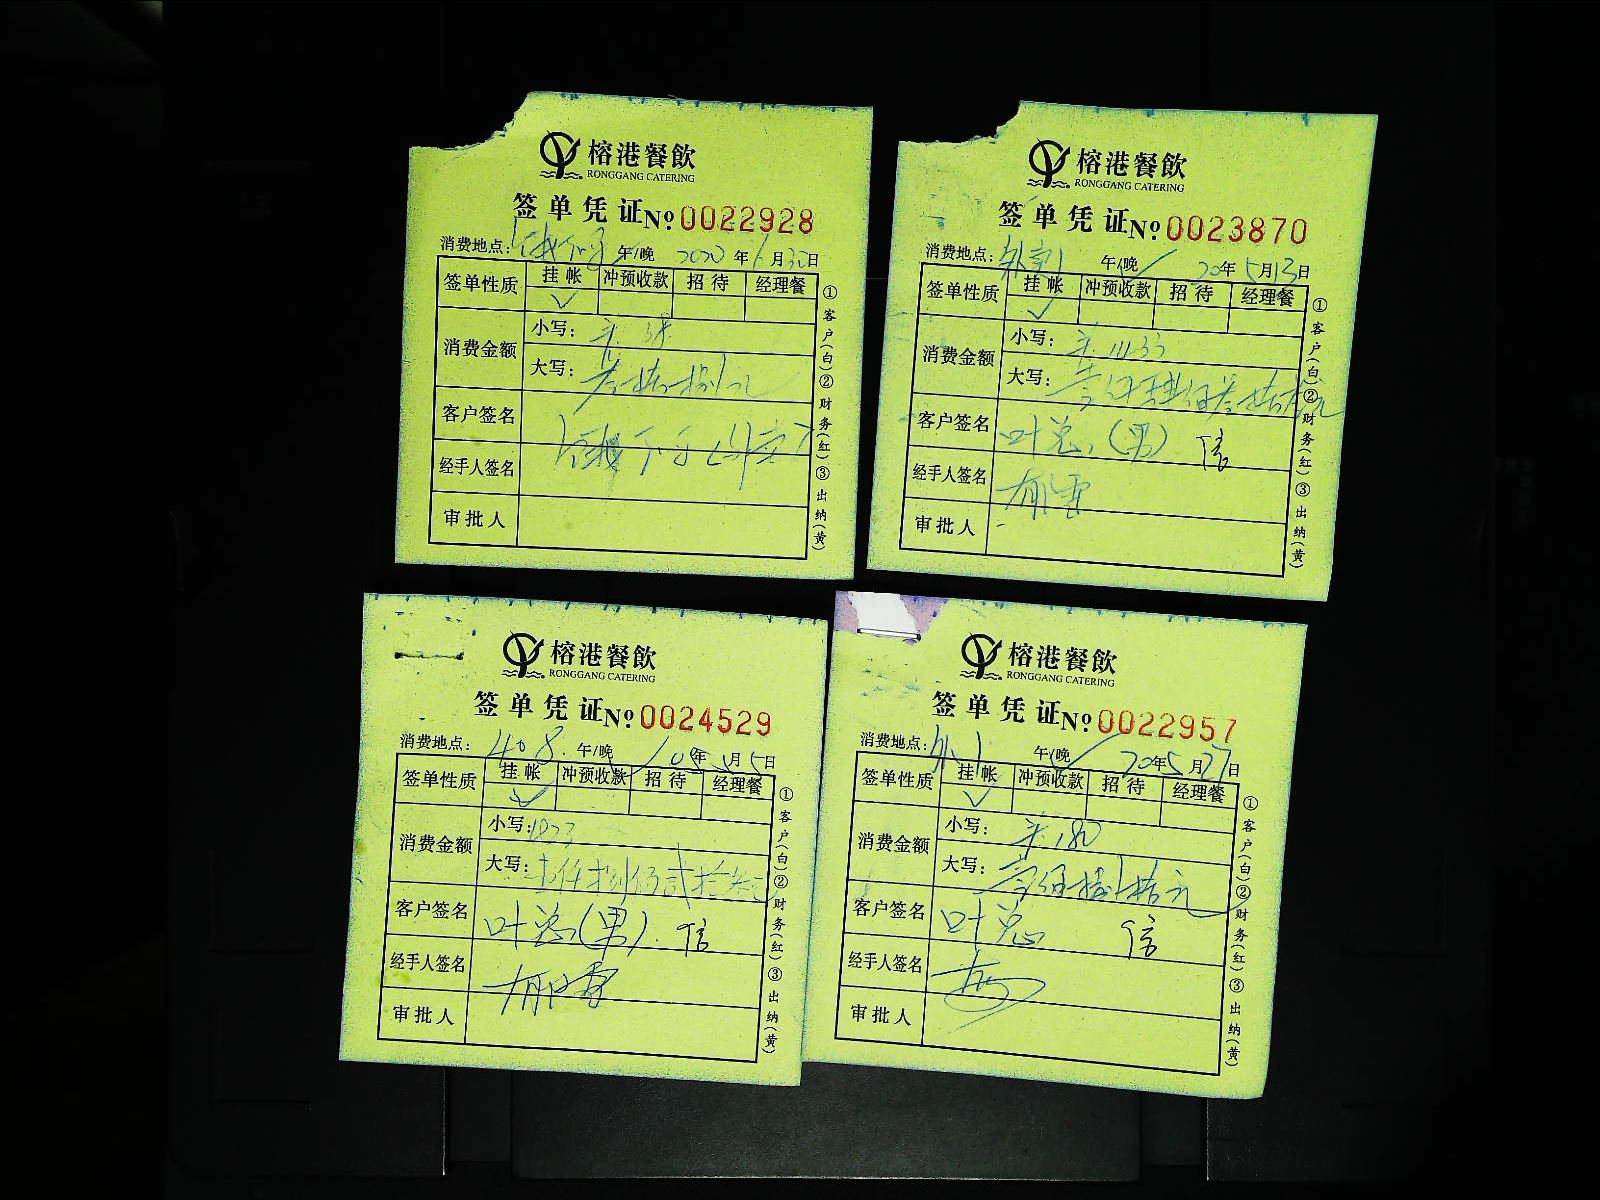 榕港餐飲
RONGGANG CATERING
签单凭证 No 0022928
消费地点： 午/晚 2020年6月30日
签单性质 挂帐 冲预收款 招待 经理餐
✓
消费金额 小写： 38
大写： 叁拾捌元
客户签名
经手人签名
审批人
①客户(白)②财务(红)③出纳(黄)
榕港餐飲
RONGGANG CATERING
签单凭证 No 0023870
消费地点： 午/晚 20年5月13日
签单性质 挂帐 冲预收款 招待 经理餐
✓
消费金额 小写：
大写：
客户签名 叶总(男) 信
经手人签名
审批人
①客户(白)②财务(红)③出纳(黄)
榕港餐飲
RONGGANG CATERING
签单凭证 No 0024529
消费地点： 408 午/晚 年 月 5日
签单性质 挂帐 冲预收款 招待 经理餐
✓
消费金额 小写： 1823
大写： 壹仟捌佰贰拾叁元
客户签名 叶总(男) 信
经手人签名
审批人
①客户(白)②财务(红)③出纳(黄)
榕港餐飲
RONGGANG CATERING
签单凭证 No 0022957
消费地点： 午/晚 20年5月27日
签单性质 挂帐 冲预收款 招待 经理餐
✓
消费金额 小写： 180
大写： 壹佰捌拾元
客户签名 叶总 信
经手人签名
审批人
①客户(白)②财务(红)③出纳(黄)